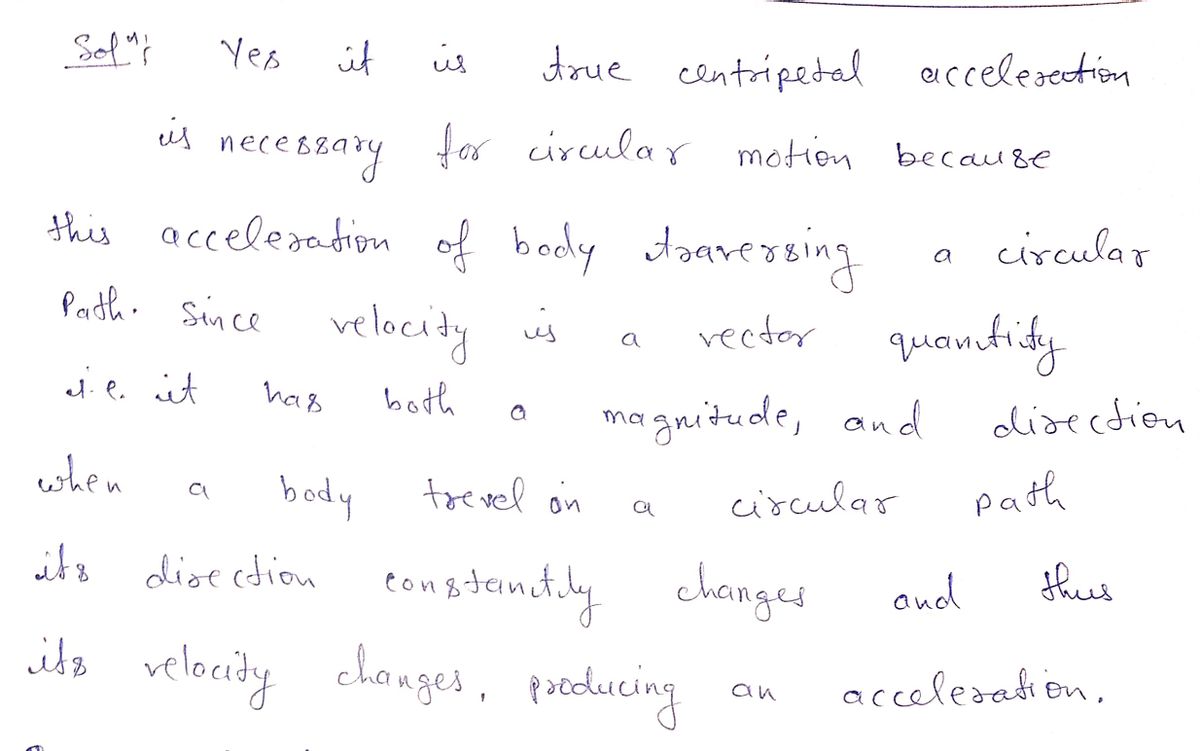 Solⁿ: Yes it is true centripetal acceleration
is necessary for circular motion because
this acceleration of body traversing a circular
Path. Since velocity is a vector quantity
i.e. it has both a magnitude, and direction
when a body trevel on a circular path
its direction constantly changes and thus
its velocity changes, producing an acceleration.